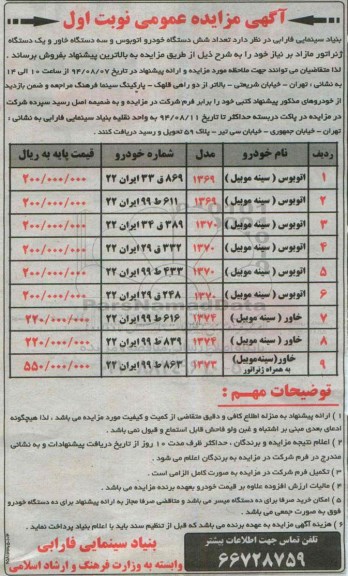 آگهی مزایده عمومی نوبت اول
بنیاد سینمایی فارابی در نظر دارد تعداد شش دستگاه خودرو اتوبوس و سه دستگاه خاور و یک دستگاه
ژنراتور مازاد بر نیاز خود را به شرح ذیل از طریق مزایده به بالاترین پیشنهاد بفروش برساند .
لذا متقاضیان می توانند جهت ملاحظه مورد مزایده و ارائه پیشنهاد در تاریخ 94/08/07 از ساعت 10 الی 14
به نشانی : تهران - خیابان شریعتی - بالاتر از دو راهی قلهک - پارکینگ سینما فرهنگ مراجعه و ضمن بازدید
از خودروهای مذکور پیشنهاد کتبی خود را برابر فرم شرکت در مزایده و به ضمیمه اصل رسید سپرده شرکت
در مزایده در پاکت دربسته حداکثر تا تاریخ 94/08/11 به واحد نقلیه بنیاد سینمایی فارابی به نشانی :
تهران - خیابان جمهوری - خیابان سی تیر - پلاک 59 تحویل و رسید دریافت کنند .
ردیف نام خودرو مدل شماره خودرو قیمت پایه به ریال
1 اتوبوس ( سینه موبیل ) 1369 869 ق 33 ایران 22 200/000/000
2 اتوبوس ( سینه موبیل ) 1369 611 ط 99 ایران 22 200/000/000
3 اتوبوس ( سینه موبیل ) 1370 389 ق 34 ایران 22 200/000/000
4 اتوبوس ( سینه موبیل ) 1370 332 ق 29 ایران 22 200/000/000
5 اتوبوس ( سینه موبیل ) 1370 433 ط 99 ایران 22 200/000/000
6 اتوبوس ( سینه موبیل ) 248 ق 29 ایران 22 200/000/000
7 خاور ( سینه موبیل ) 1374 616 ط 99 ایران 22 220/000/000
8 خاور ( سینه موبیل ) 1374 839 ط 99 ایران 22 220/000/000
9 خاور (سینه موبیل) به همراه ژنراتور 1373 863 ط 99 ایران 22 550/000/000
توضیحات مهم :
1 ) ارائه پیشنهاد به منزله اطلاع کافی و دقیق متقاضی از کمیت و کیفیت مورد مزایده می باشد ، لذا هیچگونه
ادعای بعدی مبنی بر اشتباه و غبن ولو فاحش قابل استماع و قبول نمی باشد .
2 ) اعلام نتیجه مزایده و برندگان ، حداکثر ظرف مدت 10 روز از تاریخ دریافت پیشنهادات و به نشانی
مندرج در فرم شرکت در مزایده به برندگان اعلام می شود .
3 ) تکمیل فرم شرکت در مزایده به صورت کامل الزامی است .
4 ) مالیات ارزش افزوده علاوه بر قیمت خودرو بعهده برنده مزایده می باشد .
5 ) امکان خرید صرفا برای ده دستگاه میسر می باشد و متقاضی صرفا مجاز به ارائه پیشنهاد برای ده دستگاه خودرو
فوق به صورت جمعی می باشد .
6 ) هزینه آگهی مزایده به عهده برنده می باشد که قبل از تنظیم سند باید با اعلام بنیاد پرداخت نماید .
تلفن تماس جهت اطلاعات بیشتر
66728759
بنیاد سینمایی فارابی
وابسته به وزارت فرهنگ و ارشاد اسلامی